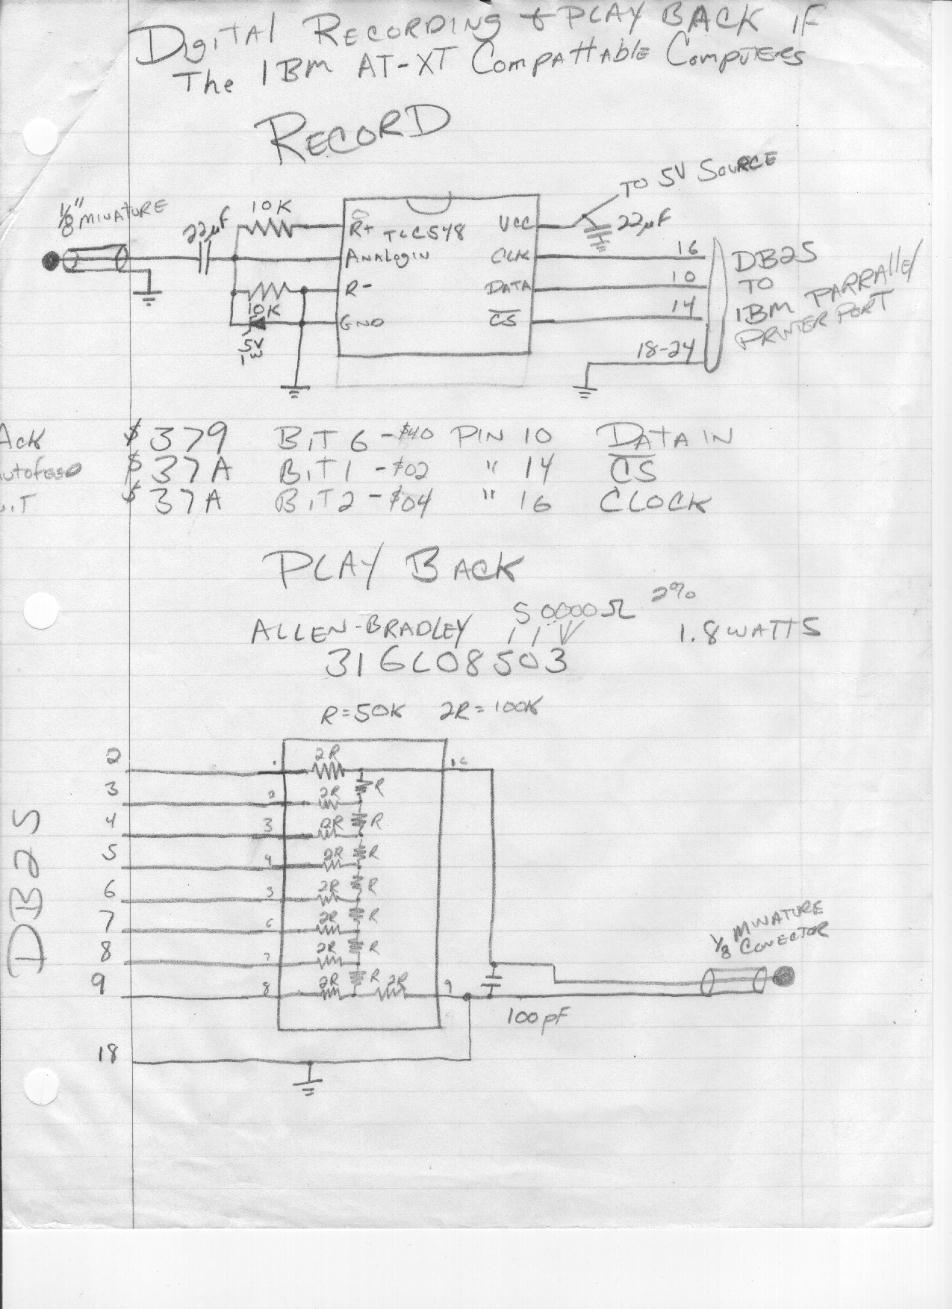 DIgITAL RECORDING & PLAY BACK IF
The IBM AT-XT CompaTTable Computers
RECORD
TO 5V SOURCE
1/8" MINATURE
22µF
10K
R+ TLC548
VCC
22µF
ANALOGIN
CLK
16
R-
DATA
10
10K
GND
CS
14
5V
1W
18-24
DB25
TO
IBM PARRAllel
PRINTER PORT
Ack $379 BIT 6 - $40 PIN 10 DATA IN
utofeed $37A BIT 1 - $02 " 14 CS
$37A BIT 2 - $04 " 16 CLOCK
PLAY BACK
50000Ω 2%
ALLEN-BRADLEY 1.8 WATTS
316L08503
R=50K 2R=100K
DB25
2 1 2R
R
3 2 2R
R
4 3 2R
R
5 4 2R
R
6 5 2R
R
7 6 2R
R
8 7 2R
R
9 8 2R 2R 9
16
100pF
18
1/8 MINATURE
CONECTOR